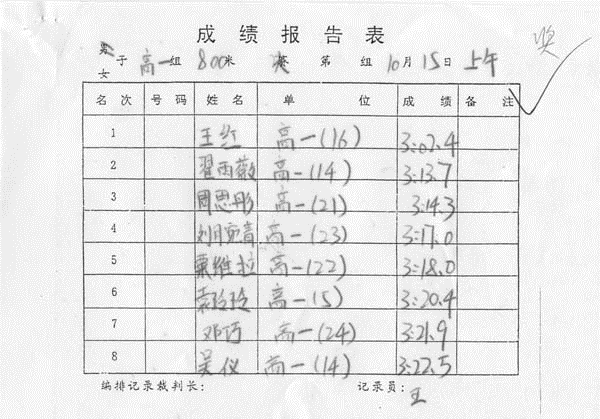 成绩报告表
奖
男女子 高一组 800米 决赛 第 组 10月15日 上午
名次 号码 姓名 单位 成绩 备注
1 王红 高一(16) 3:02.4
2 翟西薇 高一(14) 3:13.7
3 周思彤 高一(21) 3:14.3
4 高一(23) 3:17.0
5 粟维拉 高一(22) 3:18.0
6 袁玲玲 高一(5) 3:20.4
7 邓巧 高一(24) 3:21.9
8 吴仪 高一(14) 3:22.5
编排记录裁判长: 记录员: 王